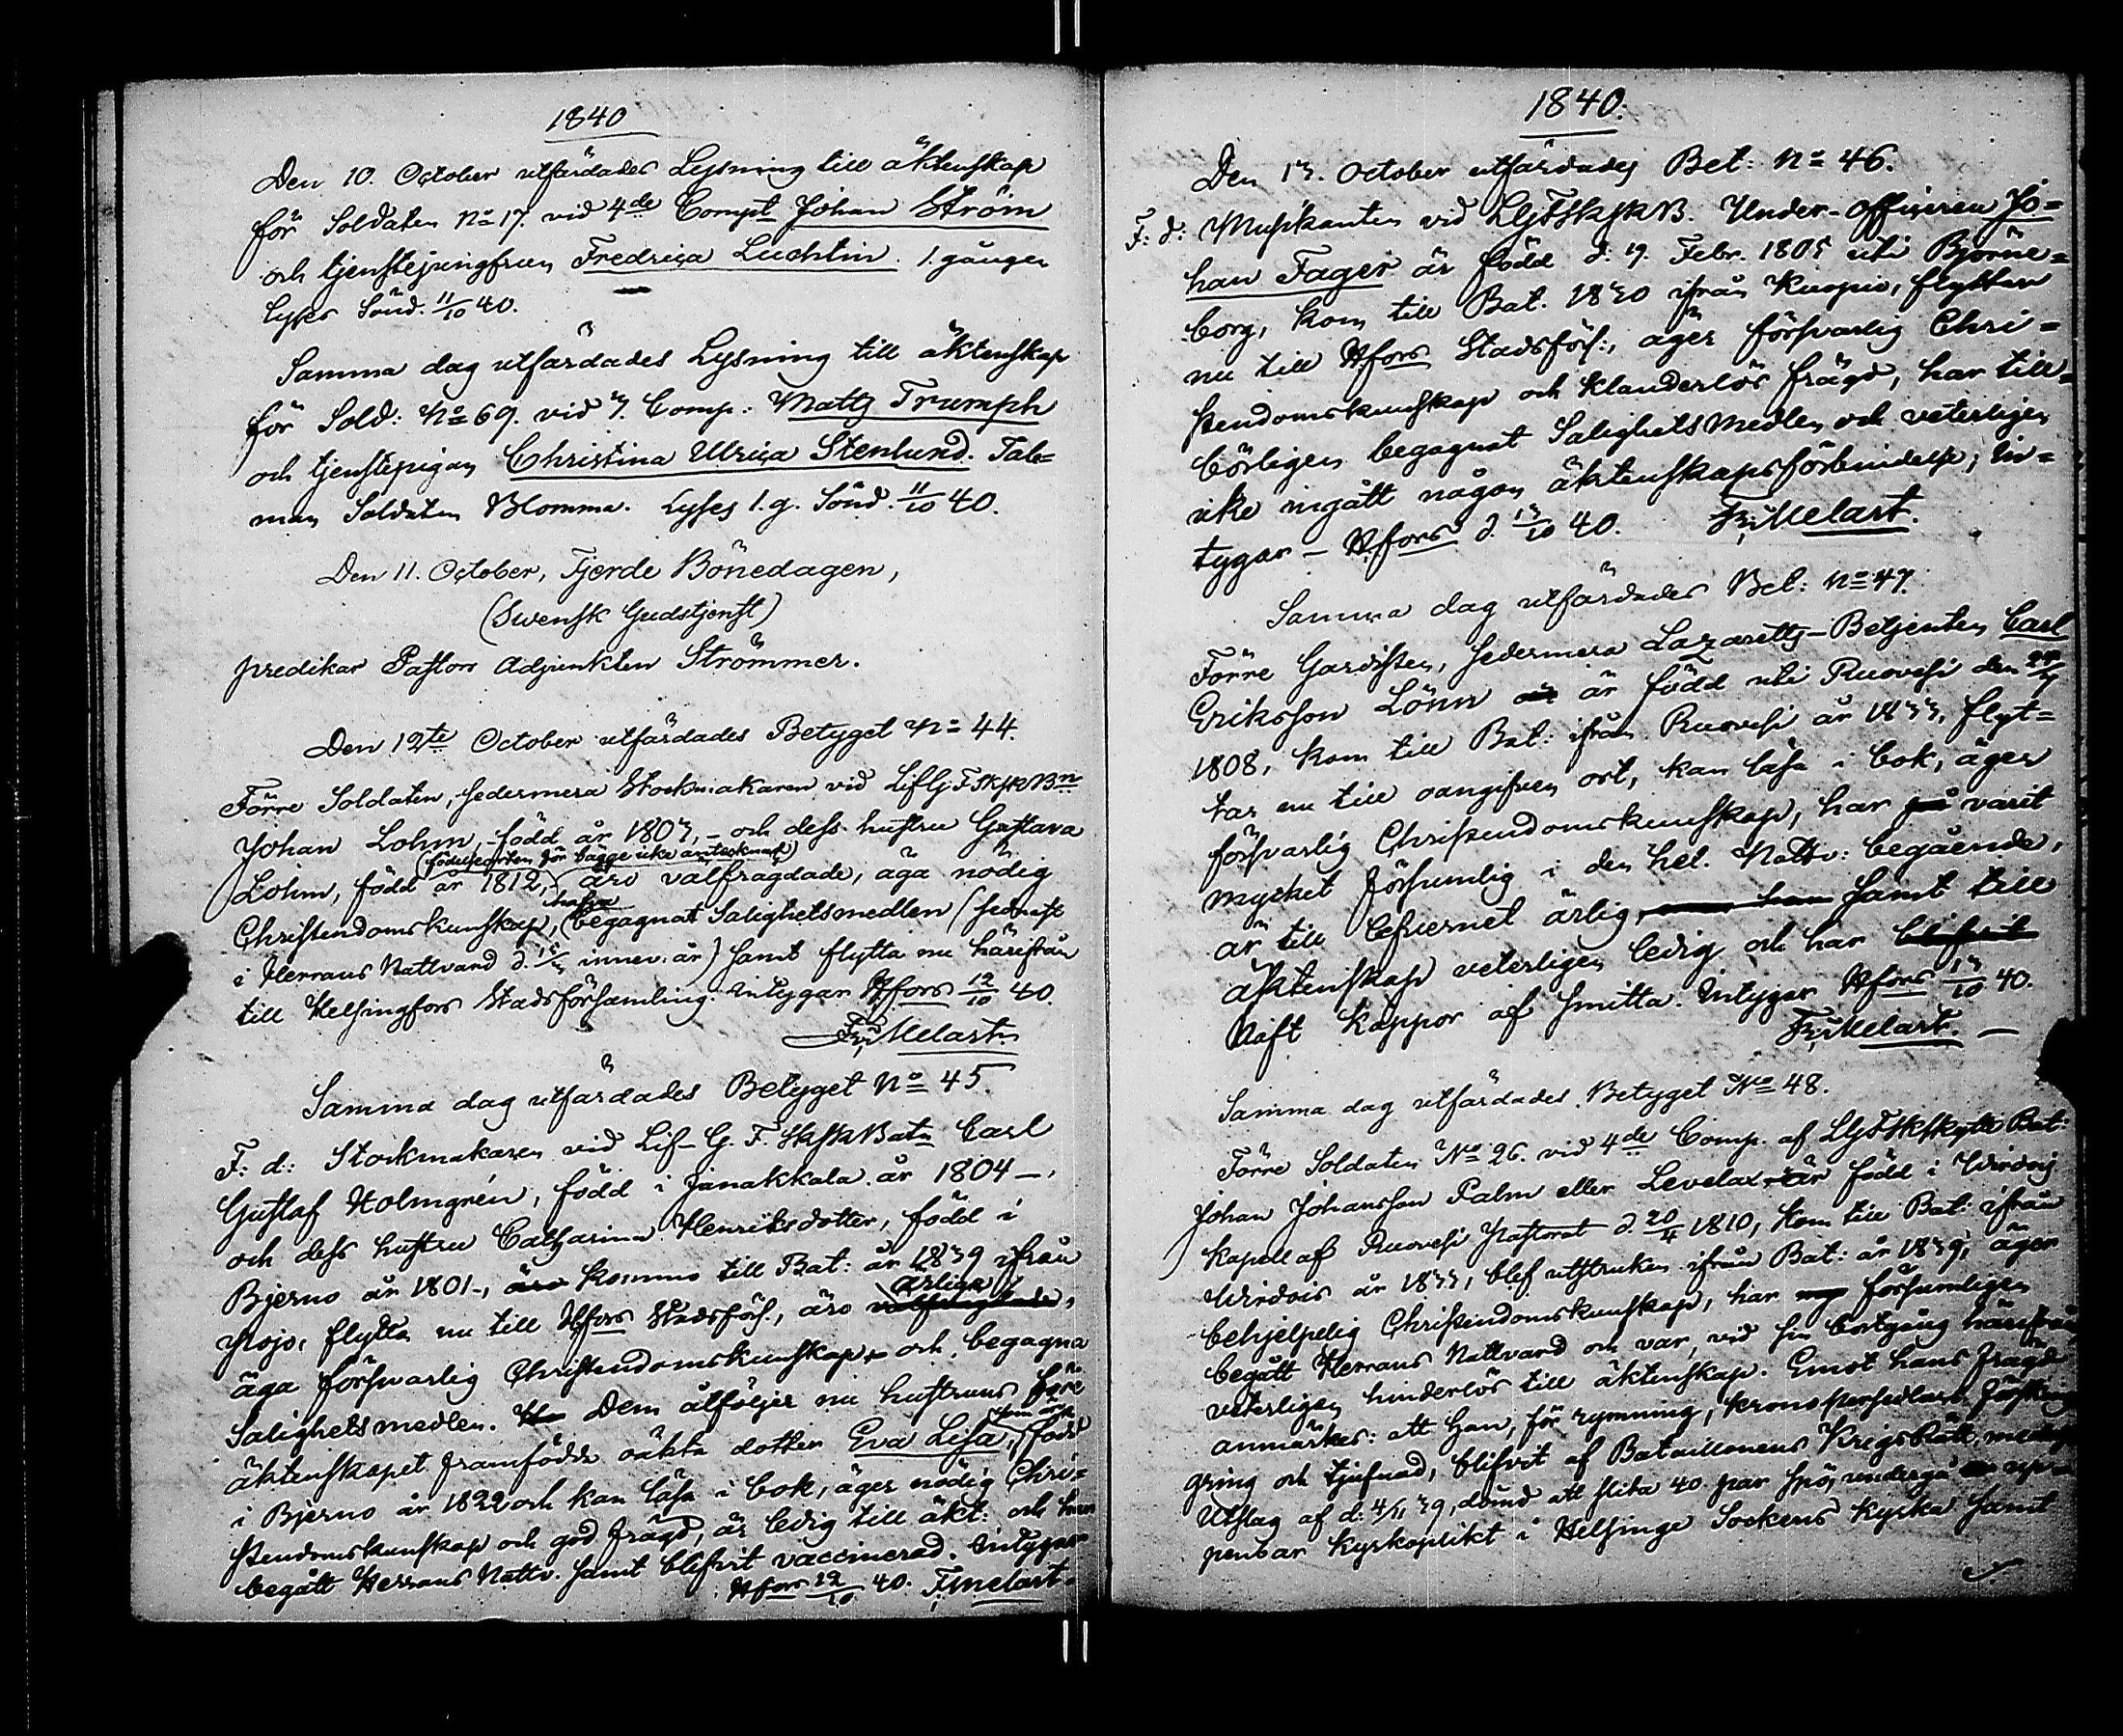 1840
Den 10. October utfärdades Lysning till äktenskap
för Soldaten No 17. vid 4de Compt Johan Ström
och tjenstejungfrun Fredrica Luchtin. 1. gången
lyses Sönd. 11/10 40.
Samma dag utfärdades Lysning till äktenskap
för Sold: No 69. vid 3. Comp: Matts Trumph
och tjenstepigan Christina Ulrica Stenlund. Tals=
man Soldaten Blomma. Lyses 1. g. Sönd. 11/10 40.
Den 11. October, Fjerde Bönedagen,
(Svensk Gudstjenst)
predikar Pastors Adjunkten Strömmer.
Den 12te October utfärdades Betyget No 44.
Förre Soldaten, sedermera Stockmakaren vid LifGFSkskBn
Johan Lohm, född år 1803, – och dess hustru Gustava
(födelseorten för bägge icke antecknad)
Lohm, född år 1812, äro välfrägdade, äga nödig
hafva
Christendomskunskap, begagnat Salighetsmedlen (sednast
i Herrans Nattvard d. innev. år) samt flytta nu härifrån
till Helsingfors Stadsförsamling. Intygar Hfors 12/10 40.
Fr; Melart.
Samma dag utfärdades Betyget No 45.
F: d: Stockmakaren vid Lif-G. F. SkskBatn Carl
Gustaf Holmgrén, född i Janakkala år 1804 –,
och dess hustru Catharina Henriksdotter, född i
Bjerno år 1801 –, äro kommo till Bat: år 1839 ifrån
ärliga
Mojo, flytta nu till Hfors Stadsförs., äro välfrägdade,
äga försvarlig Christendomskunskap, och begagna
Salighetsmedlen. Dem åtföljer nu hustruns före
som är
äktenskapet framfödda oäkta dotter Eva Lisa, född
i Bjerno år 1822 och kan läsa i bok, äger nödig Chri=
stendomskunskap och god frägd, är ledig till äkt: och har
begått Herrans Nattv. samt blifvit vaccinerad. Intygar
Hfors 12/10 40. Fr; Melart.
1840.
Den 13. October utfärdades Bet: No 46.
F: d: Musikanten vid LGFSkskB. Under-officeren Jo=
han Fager är född d. 19. Febr. 1805 uti Björne=
borg, kom till Bat. 1830 ifrån Kuopio, flyttar
nu till Hfors Stadsförs:, äger försvarlig Chri=
stendomskunskap och klanderlös frägd, har till=
börligen begagnat Salighetsmedlen och veterligen
icke ingått någon äktenskapsförbindelse; in=
tygar – Hfors d. 13/10 40. Fr; Melart.
Samma dag utfärdades Bet: No 47.
Förre Gardisten, sedermera Lazaretts-Betjenten Carl
Eriksson Lönn är född uti Ruovesi den
1808, kom till Bat: ifrån Ruovesi år 1833, flyt=
tar nu till oangifven ort, kan läsa i bok, äger
försvarlig Christendomskunskap, har varit
mycket försumlig i den hel. Nattv: begående,
är till lefvernet ärlig, samt till
äktenskap veterligen ledig och har blifvit
haft koppor af smitta. Intygar Hfors 13/10 40.
Fr; Melart. –
Samma dag utfärdades Betyget No 48.
Förre Soldaten No 26. vid 4de Comp. af LGFSkskytte Bat:
Johan Johansson Palm eller Levelax, är född i Wirdois
Kapell af Ruovesi Pastorat d. 20/4 1810, kom till Bat: ifrån
Wirdois år 1833, blef utstruken ifrån Bat: år 1839, äger
behjelpelig Christendomskunskap, har försumligen
begått Herrans Nattvard och var, vid sin bortgång härifrån
veterligen hinderlös till äktenskap. Emot hans frägd
anmärkes: att han, för rymning, kronopersedlars förskin=
gring och tjufnad, blifvit af Bataillonens KrigsRätt, medelst
Utslag af d: 4/11 39, dömd att slita 40 par spö, undergå up=
penbar kyrkoplikt i Helsinge Sockens Kyrka samt